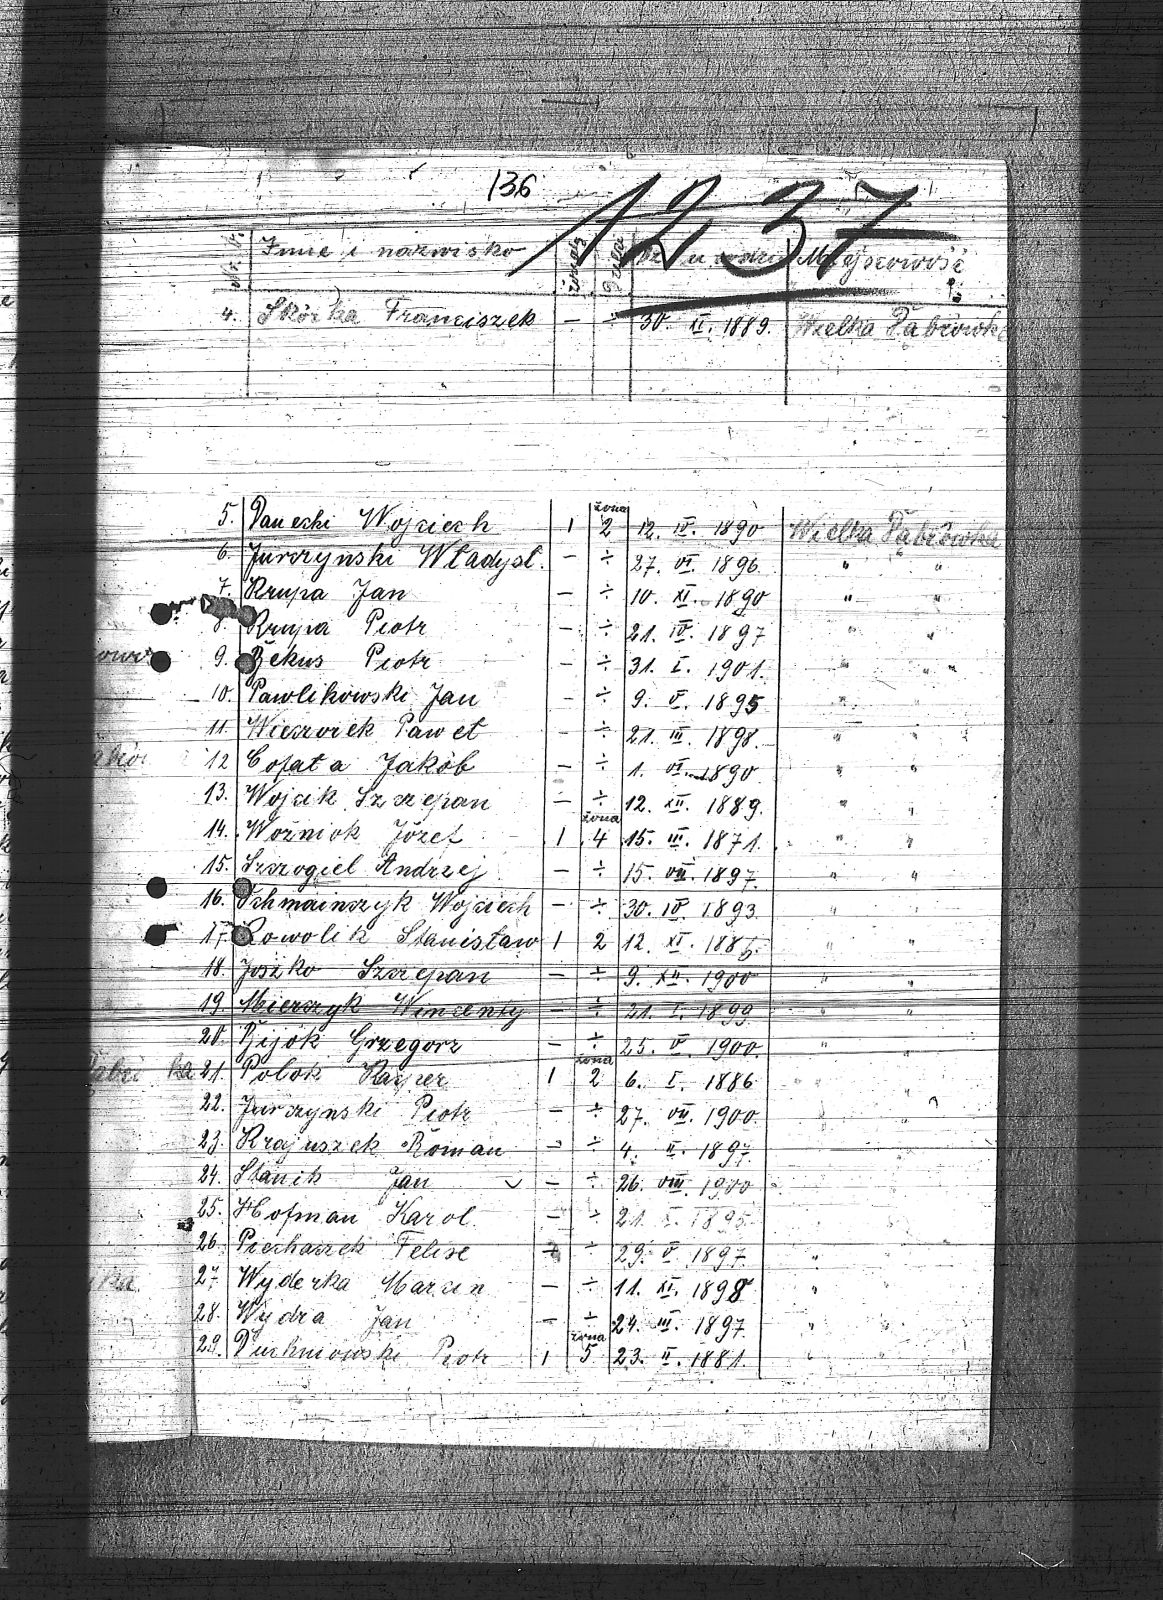 136
1237
Imię i nazwisko Miejscowość
4. Skórka Franciszek — ÷ 30. 1889. Wielka Dąbrówka
żona
5. Wojciech 1 2 12. IV. 1890 Wielka Dąbrówka
6. Jurczynski Władysł. — ÷ 27. VI. 1896. " "
7. Krupa Jan — ÷ 10. XI. 1890 " "
8. Krupa Piotr — ÷ 21. IV. 1897 " "
9. Bekus Piotr — ÷ 31. I. 1901. " "
10. Pawlikowski Jan — ÷ 9. V. 1895 " "
11. Paweł — ÷ 21. III. 1898. " "
12 Cofała Jakób — ÷ 1. VI. 1890 " "
13. Wojcik Szczepan — ÷ 12. XII. 1889. " "
żona
14. Wożniok Józef 1 4 15. III. 1871. " "
15. Szczogiel Andrzej — ÷ 15. VIII. 1897. " "
16. Wojciech — ÷ 30. IV. 1893. " "
17. Kowolik Stanisław 1 2 12. XI. " "
18. Joszko Szczepan — ÷ 9. XII. 1900 " "
19 Mierszyk Wincenty — ÷ 21. I. 1899 " "
20. Grzegorz — ÷ 25. V. 1900. " "
żona
21. Polok Kasper 1 2 6. I. 1886 " "
22. Jurczynski Piotr — ÷ 27. VII. 1900.
23. Krajuszek Roman — ÷ 4. II. 1897.
24. Stanik Jan — ÷ 26. VIII. 1900
25. Hofman Karol — ÷ 21. I. 1895.
26. Piechaczek — ÷ 29. V. 1897. "
27. Wyderka Marcin — ÷ 11. XI. 1898 "
28. Wydra Jan — ÷ 24. III. 1897. " "
żona
29. Piotr 1 5 23. II. 1881. " "